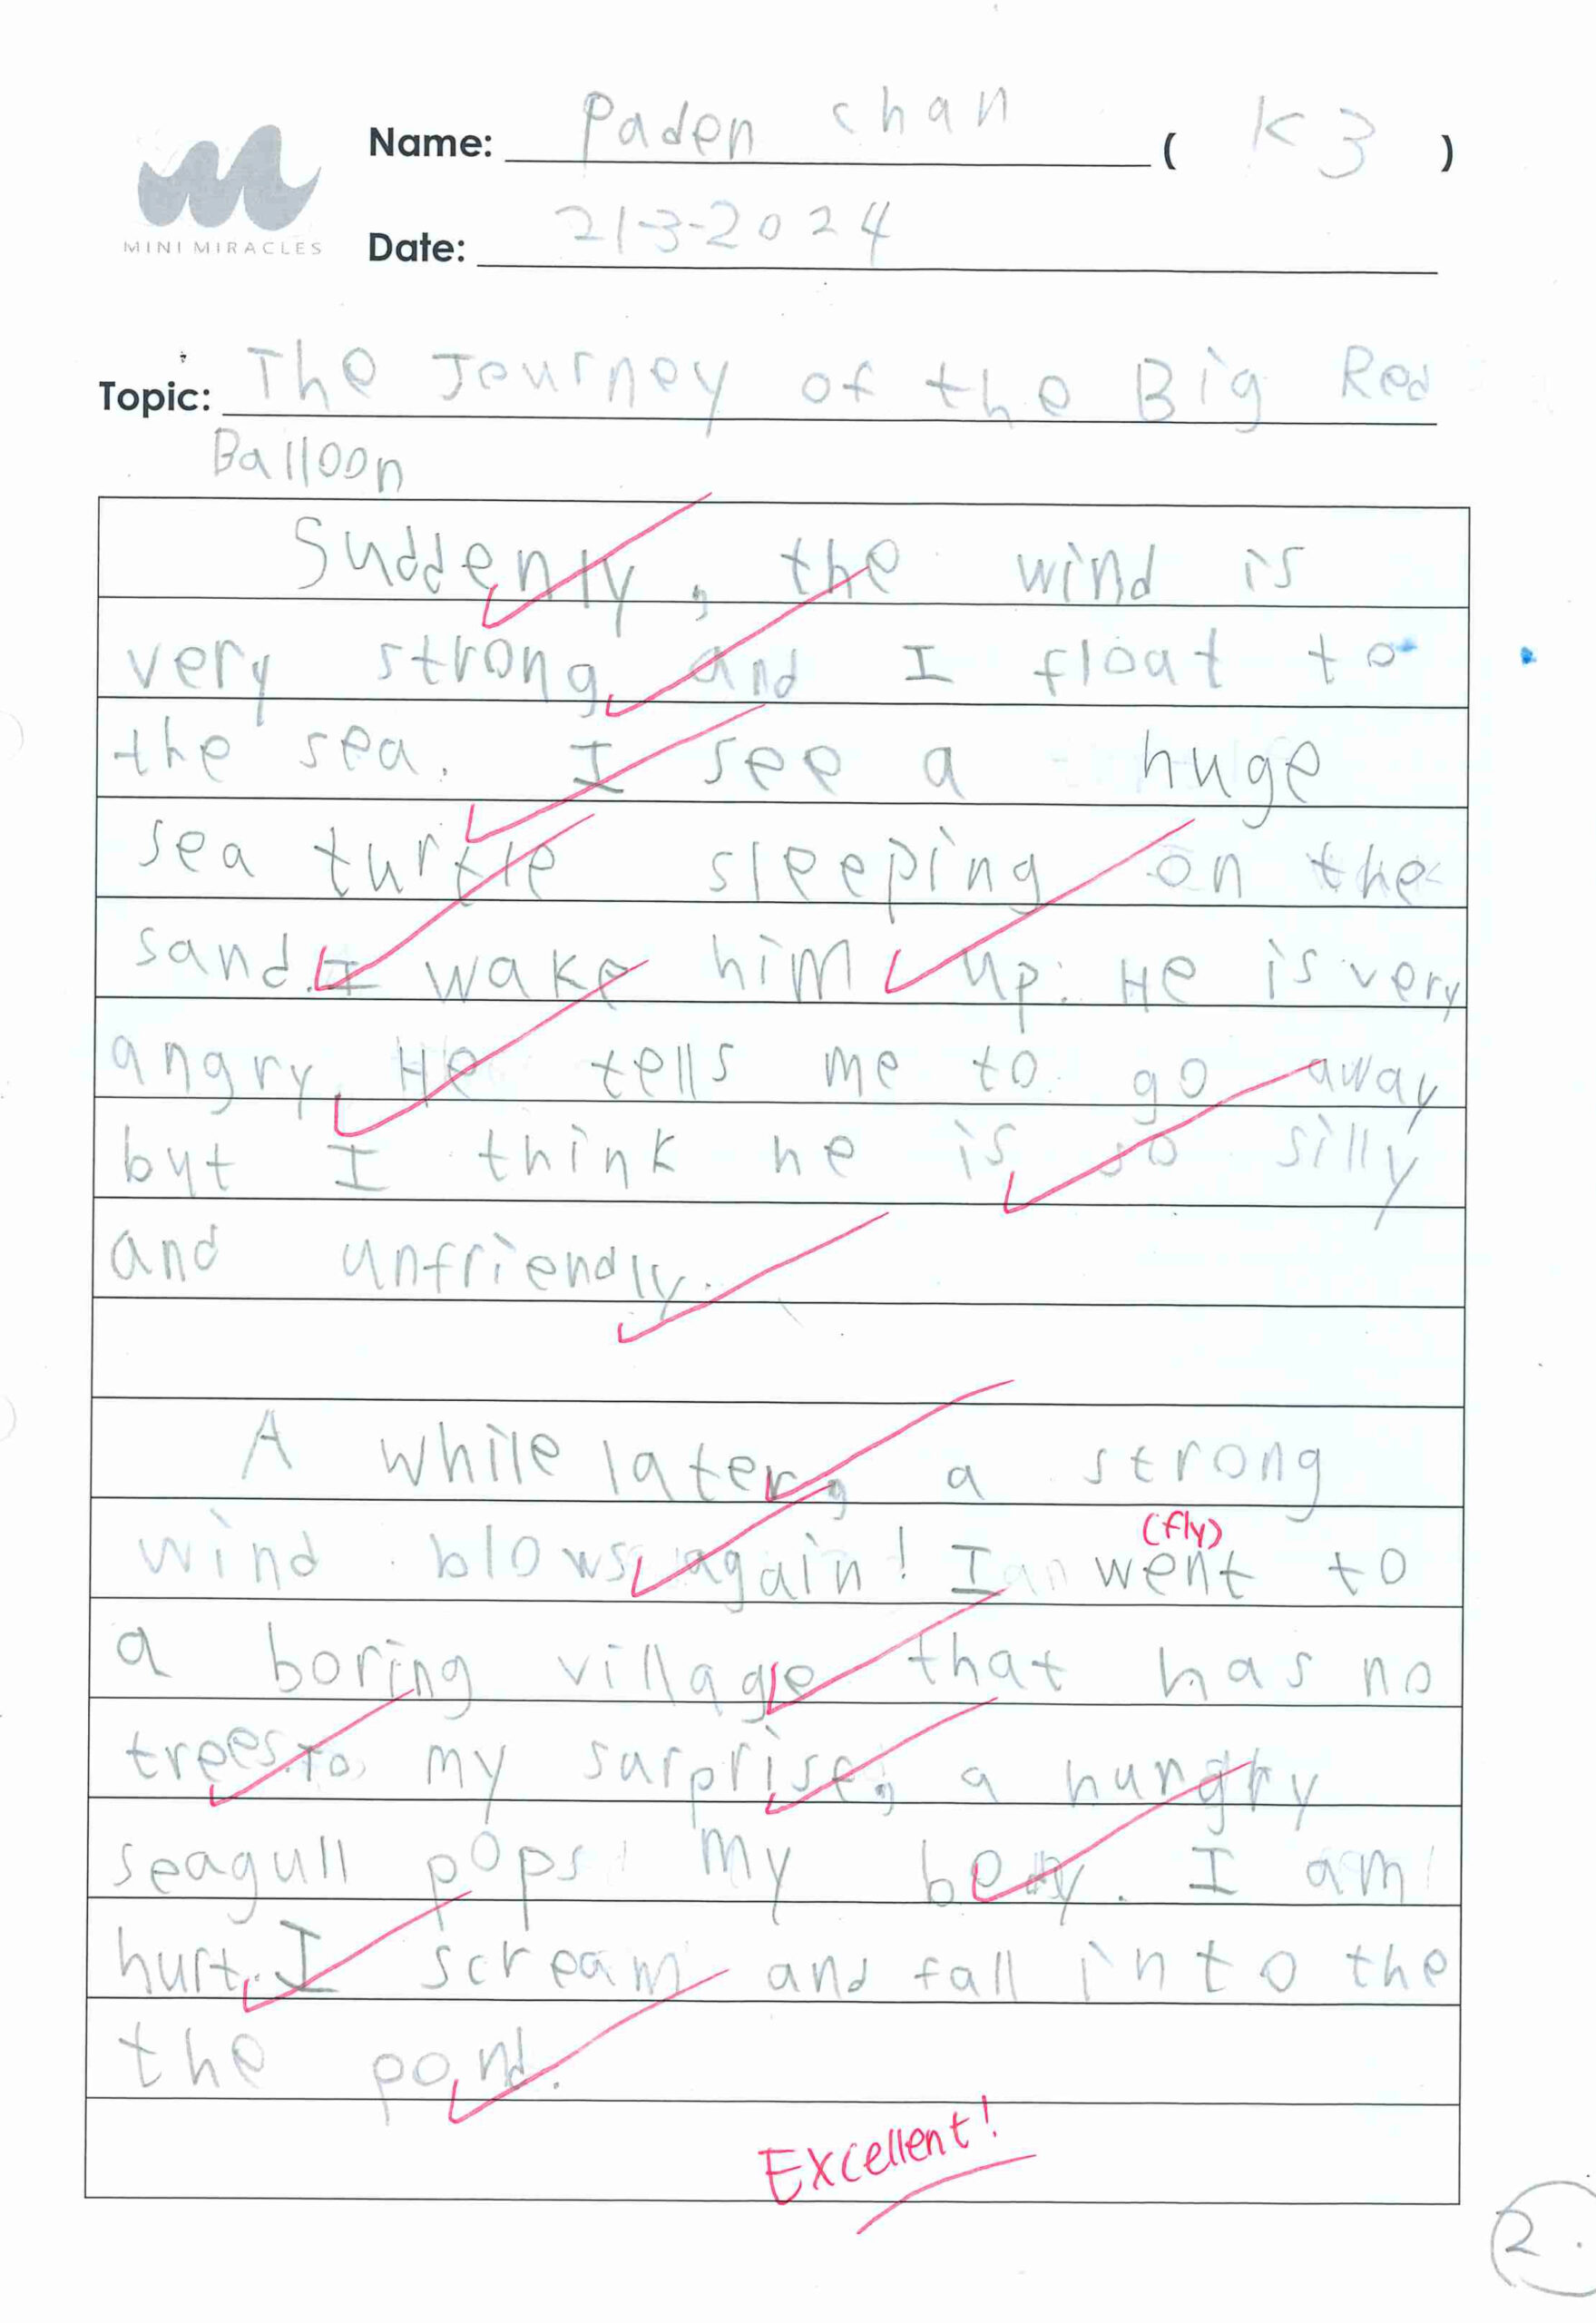 Name: Paden Chan ( K3 )
MINI MIRACLES
Date: 21-3-2024
Topic: The Journey of the Big Red
Balloon
Suddenly, the wind is
very strong and I float to
the sea. I see a huge
sea turtle sleeping on the
sand. I wake him up. He is very
angry. He tells me to go away
but I think he is so silly
and unfriendly.
A while later, a strong
(fly)
wind blows again! I went to
a boring village that has no
trees. To my surprise, a hungry
seagull pops my . I am
hurt. I scream and fall into the
the pond.
Excellent!
2.